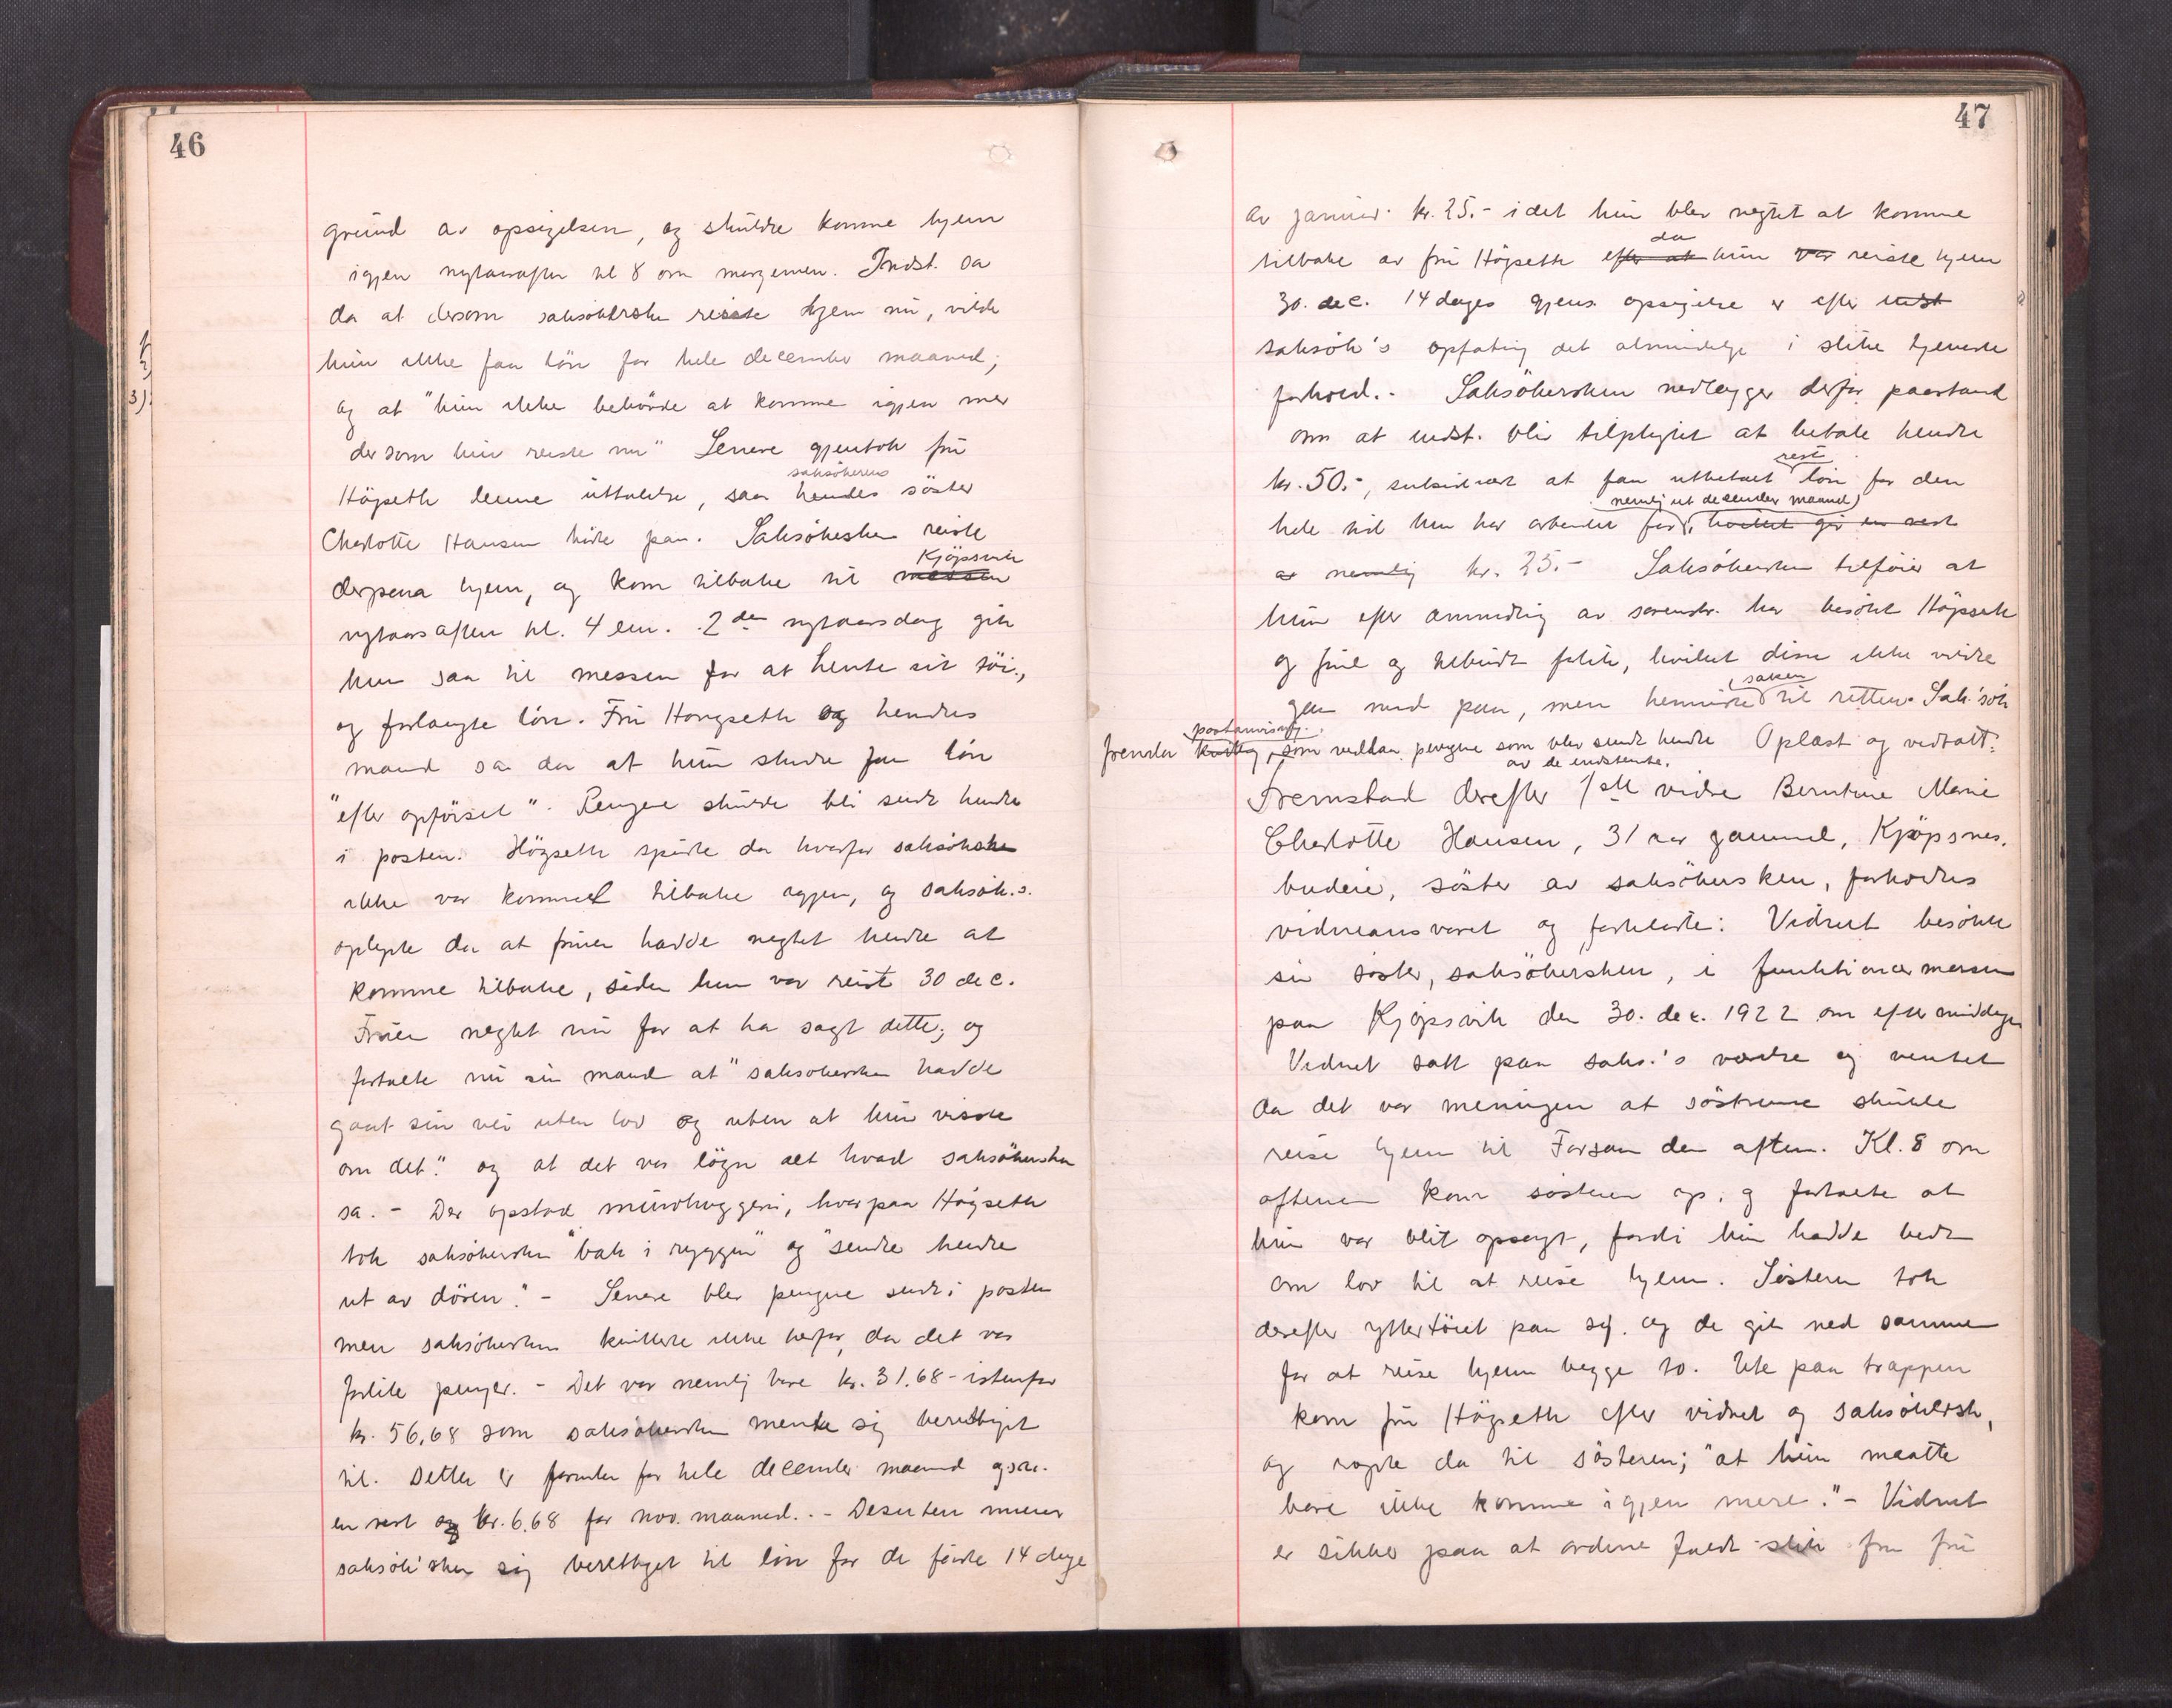 46
grund av opsigelsen, og skulde komme hjem
igjen nytaarsaften kl 8 om morgenen. Indst. sa
da at dersom saksökersken reiste hjem nu, vilde
hun ikke faa lön for hele december maaned;
og at "hun ikke behövde at komme igjen mer
dersom hun reiste nu" Senere gjentok fru
Högseth denne uttalelse, saa saksökerens hendes söster
Charlotte Hansen hörte paa. Saksökersken reiste
derpaa hjem, og kom tilbake til messen Kjöpsvik
nytaarsaften kl. 4 em. 2den nytaarsdag gik
hun saa til messen for at hente sit töi,
og forlangte lön. Fru Hongseth og hendes
mand sa da at hun skulde faa lön
"efter opförsel". Pengene skulde bli sendt hende
i posten. Högseth spurte da hvorfor saksökske
ikke var kommet tilbake igjen, og saksök.s.
oplyste da at fruen hadde negtet hende at
komme tilbake, siden hun var reist 30 dec.
Fruen negtet nu for at ha sagt dette, og
fortalte nu sin mand at "saksökersken hadde
gaat sin vei uten lov og uten at hun visste
om det." og at det var lögn alt hvad saksökersken
sa. - Der opstod mundhuggeri, hvorpaa Högseth
tok saksökersken "bak i ryggen" og "sendte hende
ut av dören." - Senere blev pengene sendt i posten
men saksökersken kvitterte ikke herfor, da det var
forlite penger. - Det var nemlig bare kr. 31,68 - istenfor
kr. 56,68 som saksökersken mente sig berettiget
til. Dette er for hele december maaned
en rest og kr. 6,68 for nov. maaned. - Desuten mener
saksök'sken sig berettiget til lön for de förste 14 dage
47
av januar kr. 25.- idet hun blev negtet at komme
tilbake av fru Högseth efter at da hun var reiste hjem
30. dec. 14 dages gjens. opsigelse er efter indst
saksök's opfatning det almindelige i slike tjeneste
forhold.- Saksökersken nedlægger derfor paastand
om at indst. blir tilpligtet at betale hende
kr. 50.-, subsidiært at faa utbetalt rest lön for den
hele tid hun har arbeidet for, nemlig ut desember maaned) hvilket gir en rest
av nemlig kr. 25.- Saksökersken tilföier at
hun efter anmodning av sorenskr. har besökt Högseth
og frue og tilbudt forlik, hvilket disse ikke vilde
gaa med paa, men henviste saken til retten. Sak'sök
fremla kvittg postanvisng. som vedkom. pengene som blev sendt hende av de indstevnte. Oplæst og vedtatt.
Fremstod derefter 1ste vidne Berntine Marie
Charlotte Hansen, 31 aar gammel, Kjöpsnes.
budeie, söster av saksökersken, forholdtes
vidneansvaret og forklarte: Vidnet besökte
sin söster, saksökersken, i funktionærmessen
paa Kjöpsvik den 30. dec. 1922 om eftermiddagen
Vidnet satt paa saks.'s værelse og ventet
da det var meningen at söstrene skulle
reise hjem til Forsan den aften. Kl. 8 om
aftenen kom sösteren op, og fortalte at
hun var blit opsagt, fordi hun hadde bedt
om lov til at reise hjem. Sösteren tok
derefter yttertöiet paa sig og de gik ned sammen
for at reise hjem begge to. Ute paa trappen
kom fru Högseth efter vidnet og saksökersk,
og ropte da til sösteren; "at hun maatte
bare ikke komme igjen mere." - Vidnet
er sikker paa at ordene faldt slik fra fru